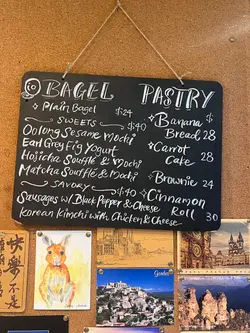 BAGEL
Plain Bagel $24
SWEETS $40
Oolong Sesame Mochi
Earl Grey Fig Yogurt
Hojicha Soufflé & Mochi
Matcha Soufflé & Mochi
SAVORY $40
Sausages w/ Black Pepper & Cheese
Korean Kimchi with Chicken & Cheese
PASTRY
Banana
Bread 28
Carrot
Cake 28
Brownie 24
Cinnamon
Roll 30
快
樂
不
是
Gordes